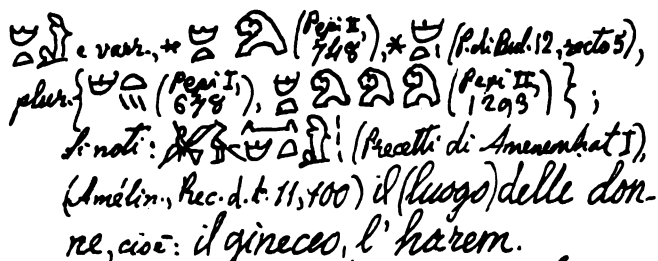 e varr., * (Pepi II, 748), * (P. di Bul. 12, recto 5),
plur. { (Pepi I, 678), (Pepi II, 1293) } ;
Si noti: (Precetti di Amenemhat I),
(Amélin., Rec. d. t. 11, 100) il (luogo) delle don-
ne, cioè: il gineceo, l' harem.